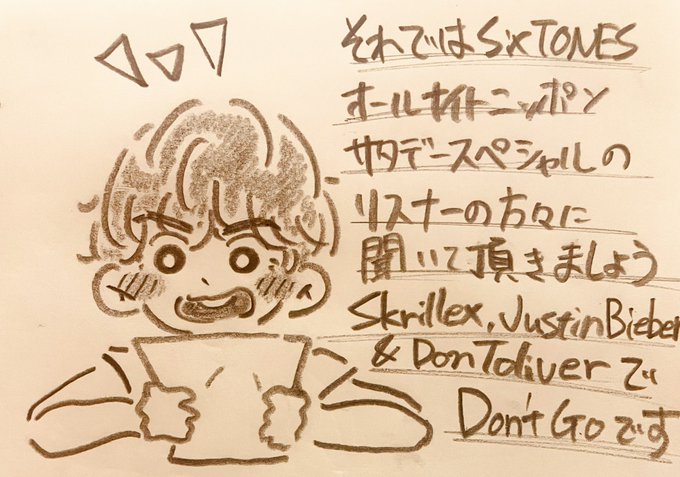 それではSixTONES
オールナイトニッポン
サタデースペシャルの
リスナーの方々に
聞いて頂きましょう
Skrillex, Justin Bieber
& Don Toliverで
Don't Goです